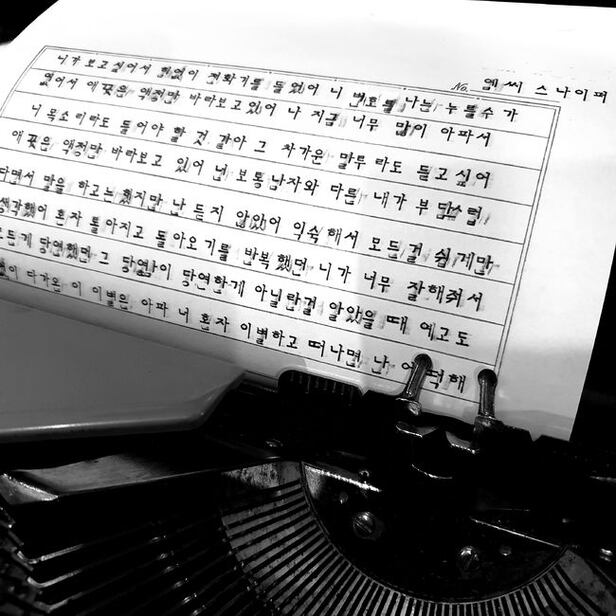 No. 엠씨 스나이퍼
니가 보고싶어서 힘없이 전화기를 들었어 니 번호를 나는 누를수 가
없어서 애꿎은 액정만 바라보고있어 나 지금 너무 많이 아파서
니 목소리라도 들어야 할 것 같아 그 차가운 말투 라도 듣고 싶어
애 꿎은 액정만 바라보고 있어 넌 보통남자와 다른 내가 부담스럽
다면서 말을 하고는 했지만 난 듣지 않았어 익숙해서 모든걸 쉽게만
생각했어 혼자 톨아지고 돌아오기를 반복했던 니가 너무 잘해줘서
모든게 당연했던 그 당연함이 당연하게 아닐란걸 알았을 때 예고도
없이 다가온 이 이별은 아파 너 혼자 이별하고 떠나면 난